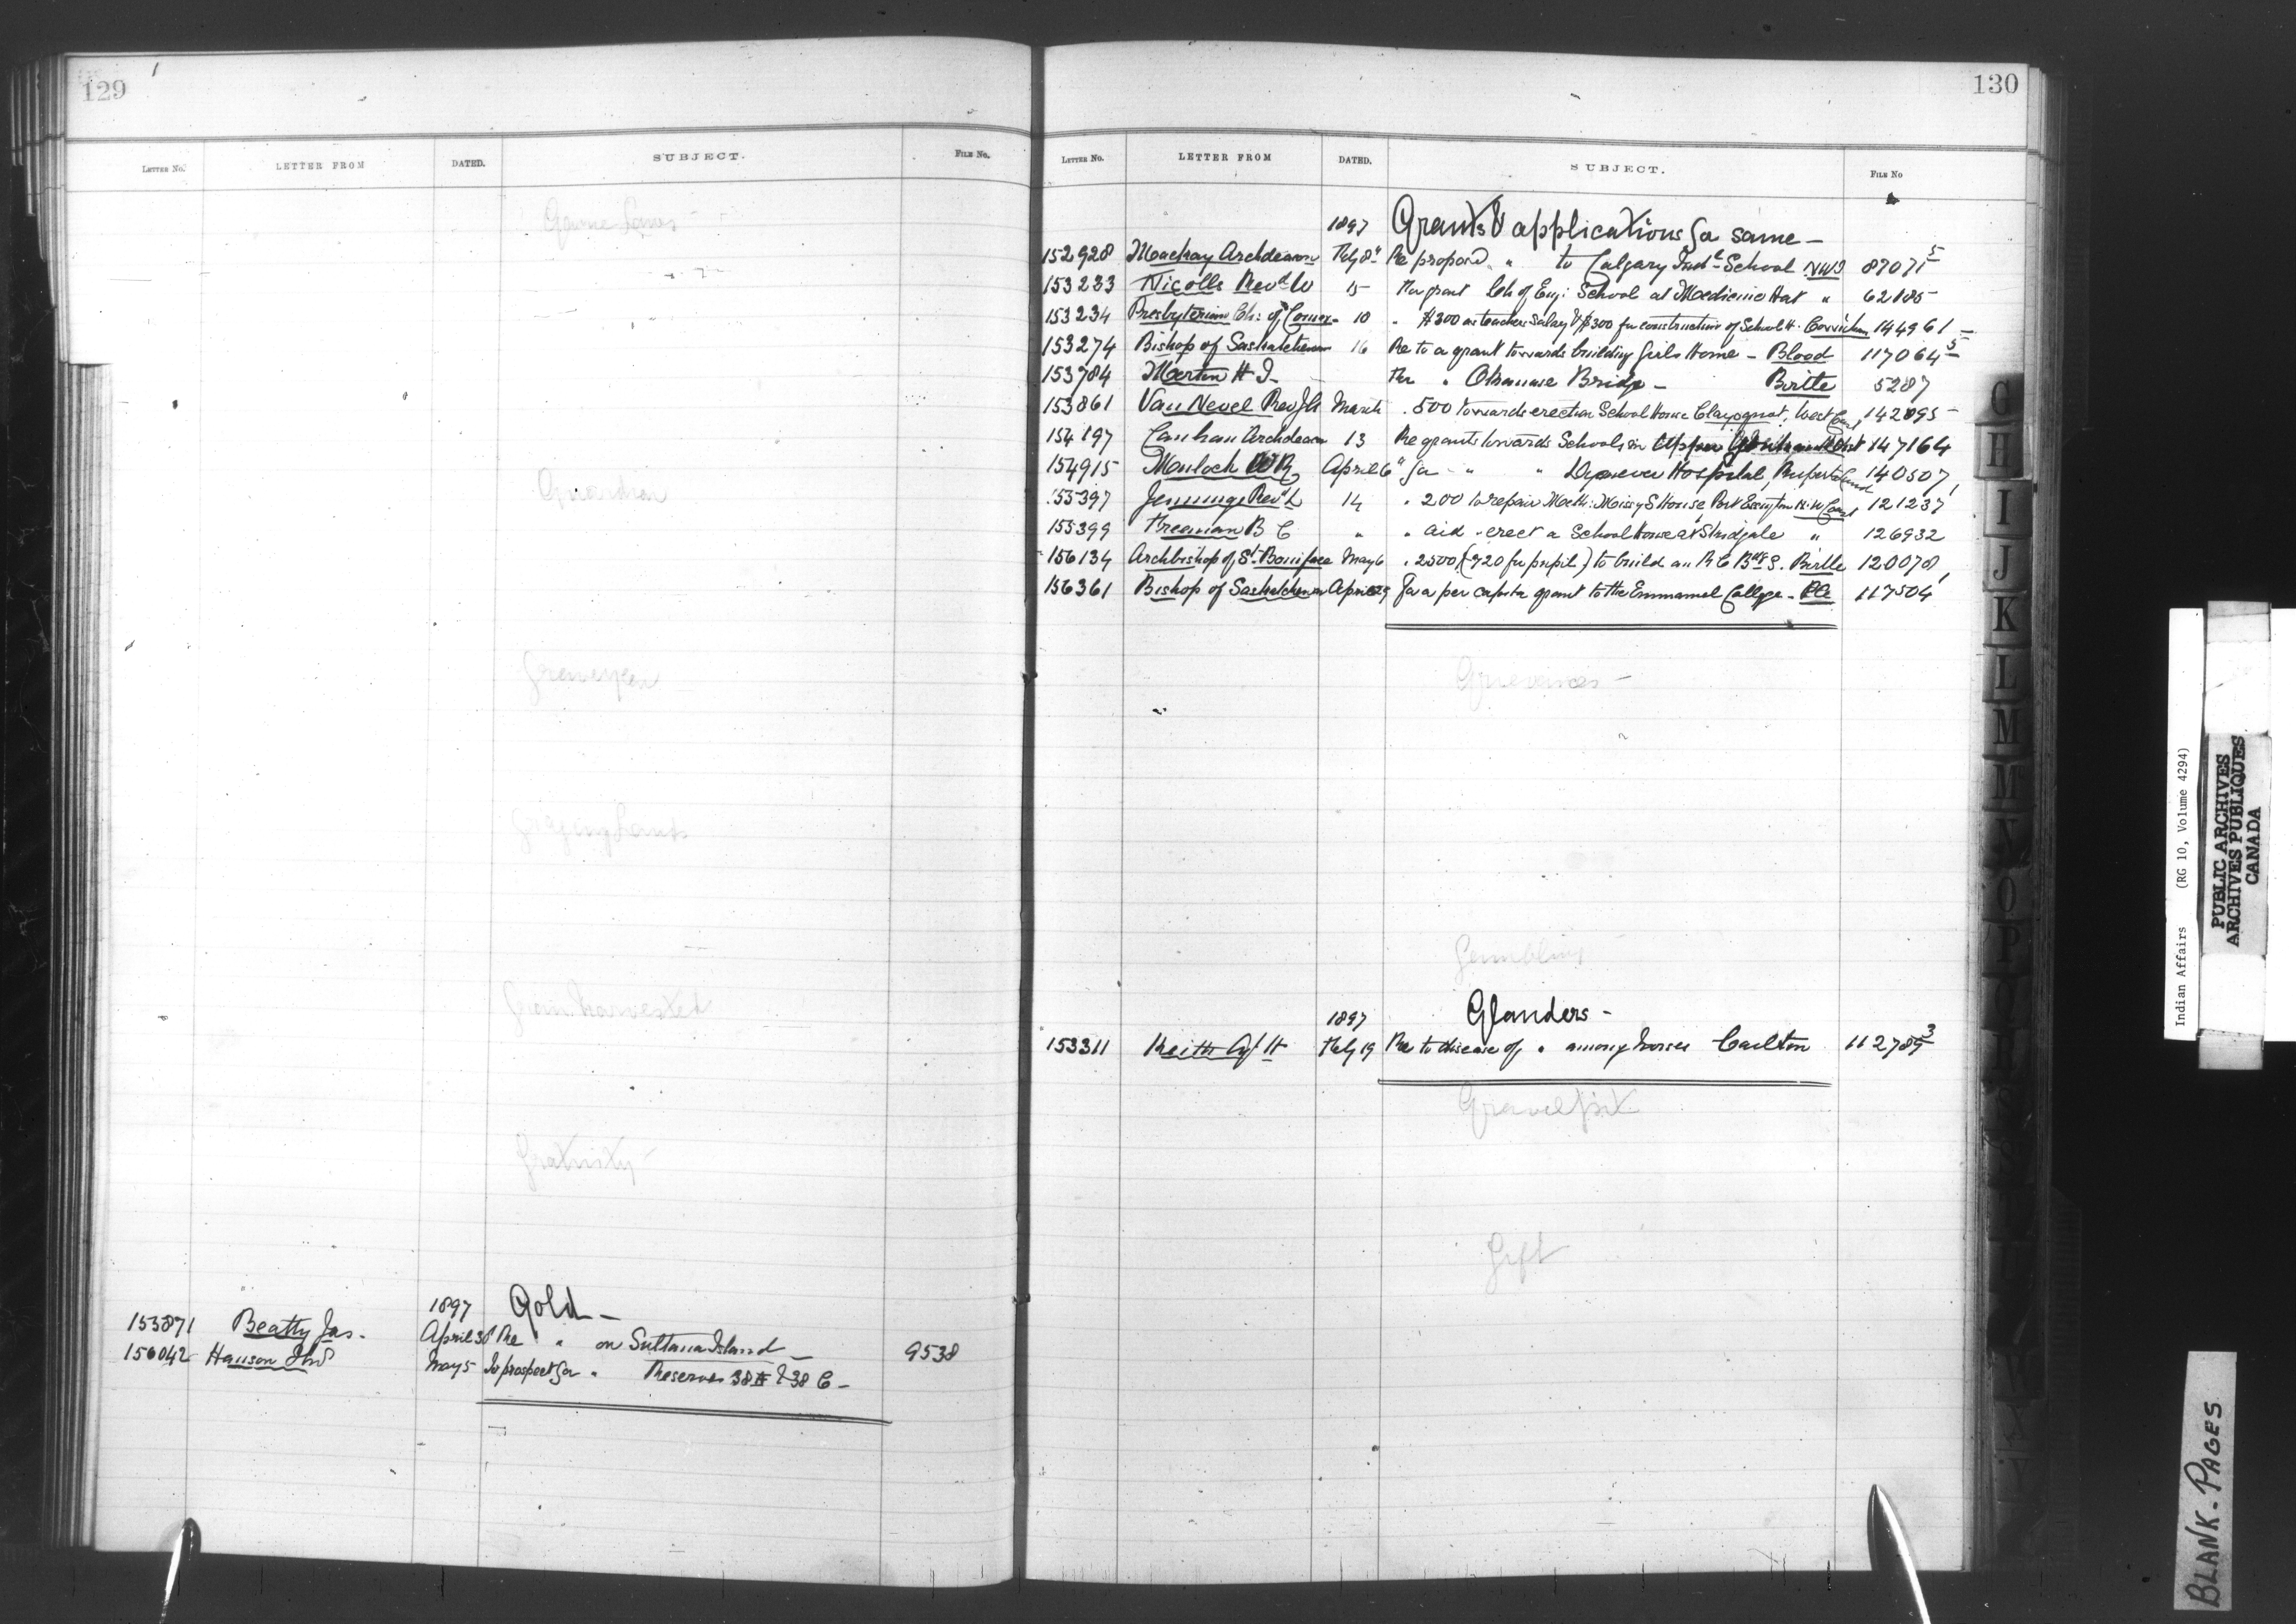 129
LETTER NO. LETTER FROM DATED. SUBJECT. FILE No.
Game Laws -
Guardian
Graveyard
Grazing Lands
Grain harvested
Gratuity -
1897 Gold -
153871 Beatty Jas. April 30 Re " on Sultana Island - 9538
156042 Hanson Thos May 5 To prospect for " Reserves 38 A & 38 C -
130
LETTER NO. LETTER FROM DATED. SUBJECT. FILE No
1897 Grants & applications for same -
152928 Mackay Archdeacon Feby 8" Re proposed " to Calgary Indl School NWT 87071 5
153233 Nicolls Revd W 15 For grant Ch of Eng: School at Medicine Hat " 62185
153234 Presbyterian Ch: of Comox - 10 " $300 as teachers Salary & $300 for construction of School H. Cowichan 144961 -
153274 Bishop of Saskatchewan 16 Re to a grant towards building Girls Home - Blood 117064 5
153784 Martin H I - For " Okanase Bridge - Birtle 5287
153861 Van Nevel Rev J A March . 500 towards erection School House Clayoquot, West Coast 142895 -
154197 Canham Archdeacon 13 Re grants towards Schools in Upper 147164
154915 Mulock W R April 6 " for " " Dynevor Hospital, Rupertsland 140507,
155397 Jennings Revd D 14 . 200 to repair Meth: Missy S House, Port Essington N.W. Coast 121237
155399 Freeman B C " " aid . erect a School House at Skidgate " 126932
156134 Archbishop of St. Boniface May 6 . 2500 (-$20 per pupil) to build an R C Bdg S. Birtle 120078,
156361 Bishop of Saskatchewan April 29 For a per capita grant to the Emmanuel College - 117504
Grievances -
Gambling
1897 Glanders -
153311 Keith Agt H Feby 19 Re to disease of " among horses Carlton 112789 3
Gravel pit
Gift
G
H
I
J
K
L
M
Mc
N
O
P
Q
R
S
T
W
X
Y
Indian Affairs (RG 10, Volume 4294)
PUBLIC ARCHIVES
ARCHIVES PUBLIQUES
CANADA
BLANK-PAGES